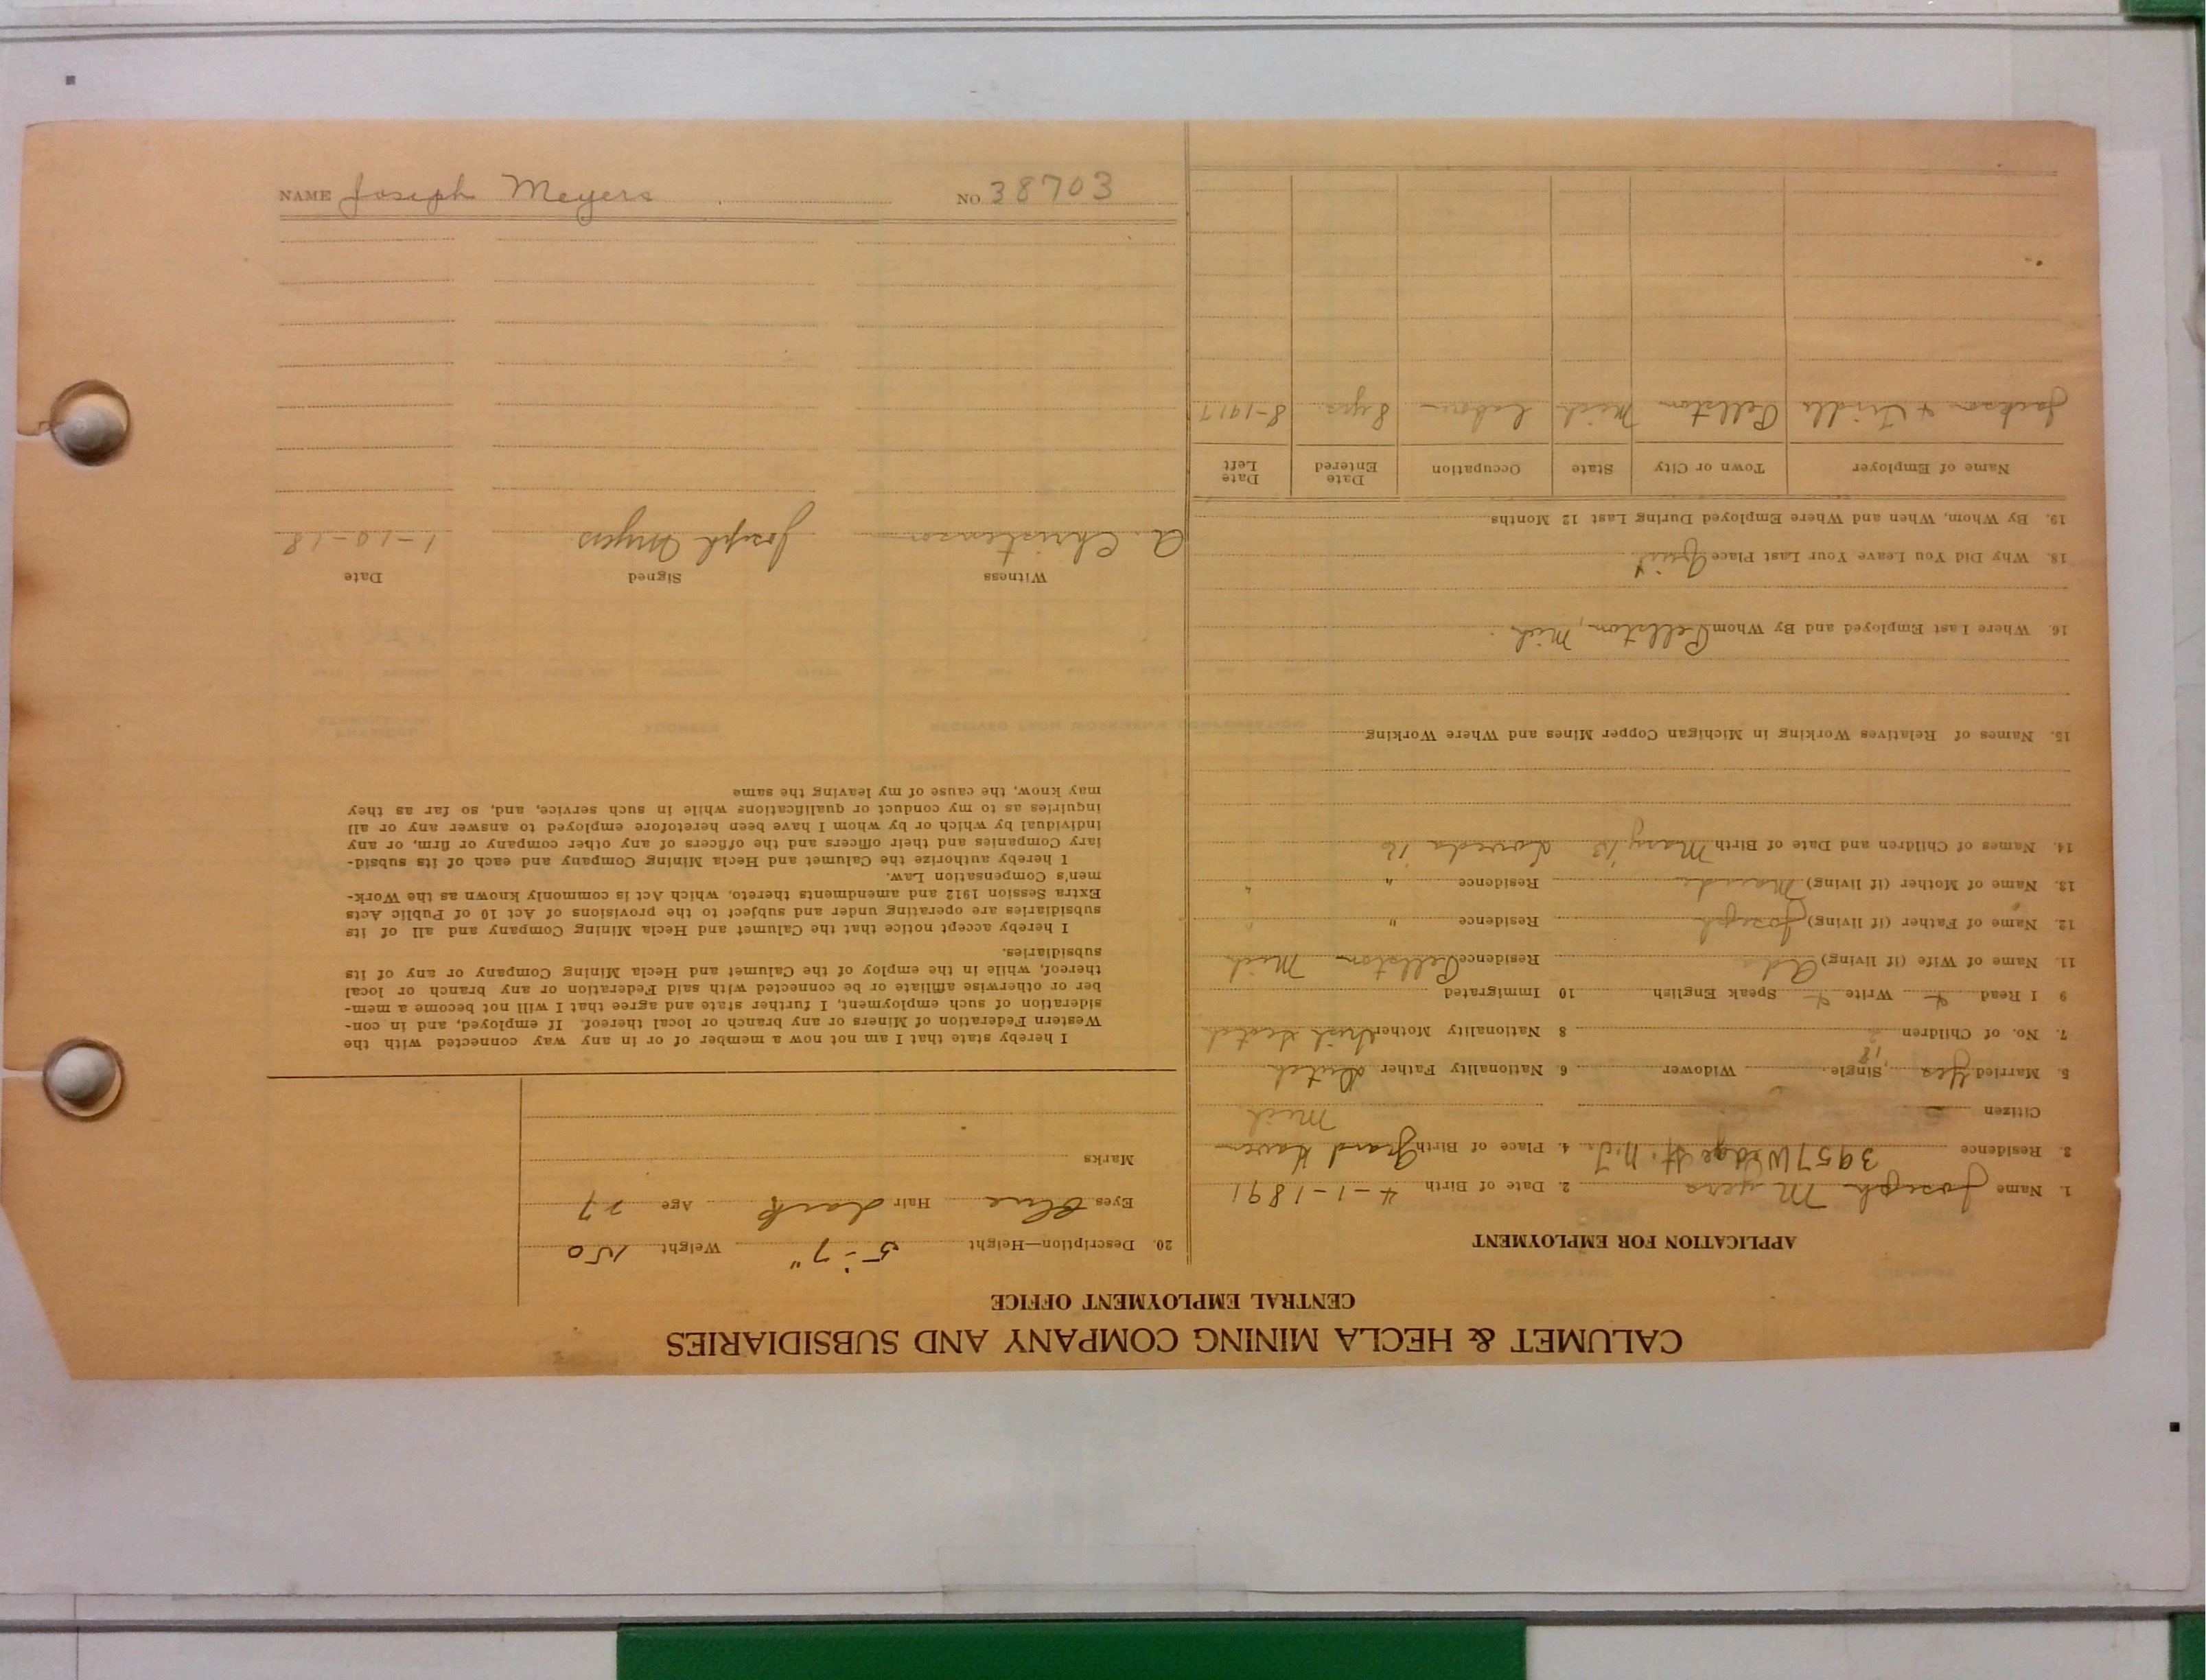 CALUMET & HECLA MINING COMPANY AND SUBSIDIARIES
CENTRAL EMPLOYMENT OFFICE
APPLICATION FOR EMPLOYMENT
1. Name Joseph Myers 2. Date of Birth 4-1-1891
3. Residence 3957 Wedge St. N.J. 4. Place of Birth Grand Haven
Citizen Mich
5. Married Yes Single 18 Widower 6. Nationality Father Dutch
7. No. of Children 2 8 Nationality Mother Irish Scotch
9 I Read Write Speak English 10 Immigrated
11. Name of Wife (if living) Ada Residence Pellston Mich
12. Name of Father (if living) Joseph Residence " "
13. Name of Mother (if living) Residence " "
14. Names of Children and Date of Birth Mary '13 '16
15. Names of Relatives Working in Michigan Copper Mines and Where Working
16. Where Last Employed and By Whom Pellston, Mich.
18. Why Did You Leave Your Last Place Quit
19. By Whom, When and Where Employed During Last 12 Months
Name of Employer Town or City State Occupation Date Entered Date Left
Jackson & Pellston Mich Labor 8 yrs. 8-1917
20. Description—Height 5'-7" Weight 150
Eyes Blue Hair dark Age 27
Marks
I hereby state that I am not now a member of or in any way connected with the
Western Federation of Miners or any branch or local thereof. If employed, and in con-
sideration of such employment, I further state and agree that I will not become a mem-
ber or otherwise affiliate or be connected with said Federation or any branch or local
thereof, while in the employ of the Calumet and Hecla Mining Company or any of its
subsidiaries.
I hereby accept notice that the Calumet and Hecla Mining Company and all of its
subsidiaries are operating under and subject to the provisions of Act 10 of Public Acts
Extra Session 1912 and amendments thereto, which Act is commonly known as the Work-
men's Compensation Law.
I hereby authorize the Calumet and Hecla Mining Company and each of its subsid-
iary Companies and their officers and the officers of any other company or firm, or any
individual by which or by whom I have been heretofore employed to answer any or all
inquiries as to my conduct or qualifications while in such service, and, so far as they
may know, the cause of my leaving the same
Witness Signed Date
A. Christenson Joseph Myers 1-10-18
NAME Joseph Meyers NO 38703